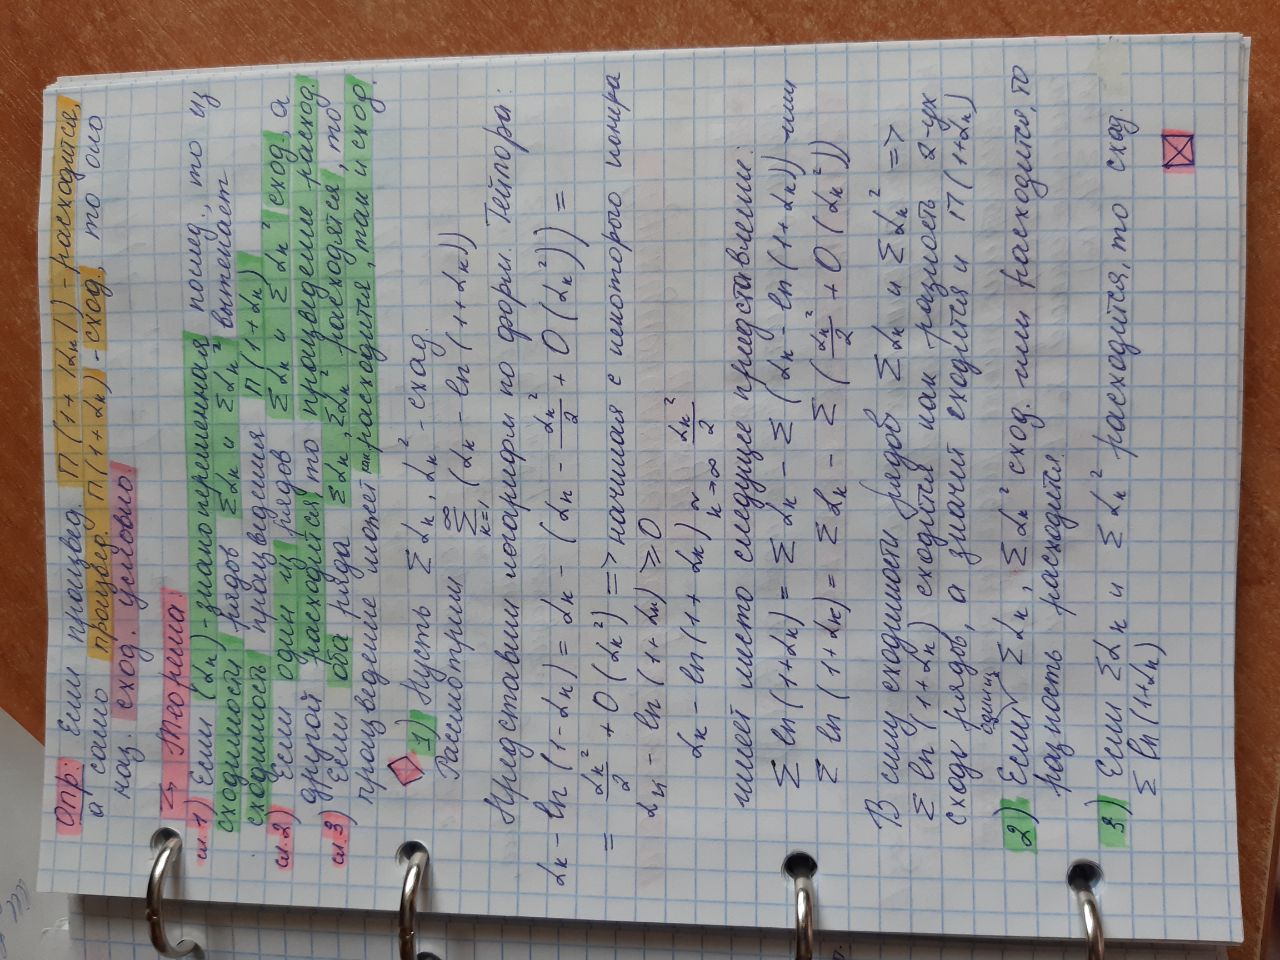 Опр: Если произвед. П(1+|αₙ|) - расходится,
а само произвед. П(1+αₙ) - сход., то оно
наз. сход. условно
Теорема:
сл.1) Если (αₙ) - знакопеременная послед., то из
сходимости рядов Σαₙ и Σαₙ² вытекает
сходимость произведения П(1+αₙ)
сл.2) Если один из рядов Σαₙ и Σαₙ² сход., а
другой расходится, то произведение расход.
сл.3) Если оба ряда Σαₙ, Σαₙ² расходятся, то
произведение может как расходится, так и сход.
1) Пусть Σαₙ, αₙ² - сход.
Рассмотрим Σ_{k=1}^{∞} (αₖ - ln(1+αₖ))
Представим логарифм по форм. Тейлора:
αₖ - ln(1-αₙ) = αₖ - (αₙ - αₙ²/2 + O(αₙ²)) =
= αₖ²/2 + O(αₖ²) => начиная с некоторого номера
αₙ - ln(1+αₙ) ≥ 0
αₖ - ln(1+αₖ) ~_{k→∞} αₖ²/2
имеет место следущее представление:
Σ ln(1+αₖ) = Σαₖ - Σ(αₖ - ln(1+αₖ)) или
Σ ln(1+αₖ) = Σαₖ - Σ(αₖ²/2 + O(αₖ²))
В силу сходимости рядов Σαₙ и Σαₙ² =>
Σ ln(1+αₙ) сходится как разность 2-ух
сход. рядов, а значит сходится и П(1+αₙ)
2) Если один из Σαₙ, Σαₙ² сход. или расходится, то
разность расходится.
3) Если Σαₙ и Σαₙ² расходится, то сход.
Σ ln(1+αₙ)